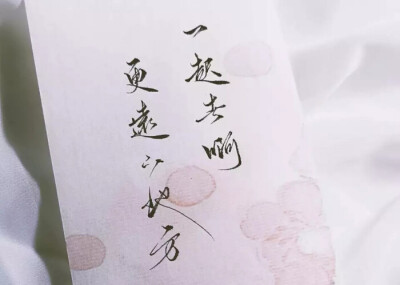 一起去啊
更遠的地方